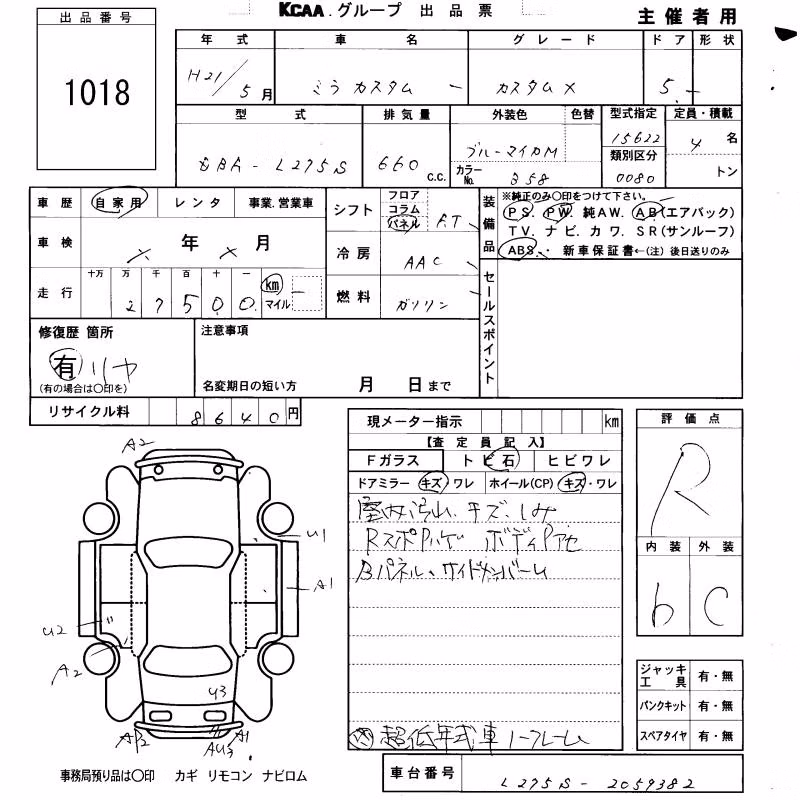 KCAA.グループ 出品票
主催者用
出品番号
1018
年式 車名 グレード ドア 形状
H21/5月 ミラカスタム - カスタムX 5. -
型式 排気量 外装色 色替 型式指定 定員・積載
DBA- L275S 660 C.C. ブルーマイカM 15622 4 名
カラーNo. 358 類別区分 0080 トン
車歴 自家用 レンタ 事業.営業車
シフト フロア コラム パネル F.T
装備品 ※純正のみ○印をつけて下さい。
PS. PW. 純AW. AB(エアバック)
TV. ナビ. カワ. SR(サンルーフ)
ABS. ・ 新車保証書←(注) 後日送りのみ
車検 × 年 × 月
冷房 AAC
走行 十万 万 千 百 十 一
2 7 5 0 0 km マイル -
燃料 ガソリン
セールスポイント
修復歴 箇所 注意事項
有 リヤ
(有の場合は○印を) 名変期日の短い方 月 日まで
リサイクル料 8 6 4 0 円
現メーター指示 km
【査定員記入】
Fガラス トビ石 ヒビワレ
ドアミラー キズ・ワレ ホイール(CP) キズ・ワレ
室内汚れ. キズ. しみ
ボディ
Bパネル、サイドメンバーム
超低年式車 ノークレーム
評価点
R
内装 外装
b C
A2
U1
A1
U2
A2
U3
A1
AU3
ジャッキ 工具 有・無
パンクキット 有・無
スペアタイヤ 有・無
事務局預り品は○印 カギ リモコン ナビロム
車台番号 L275S-2059382